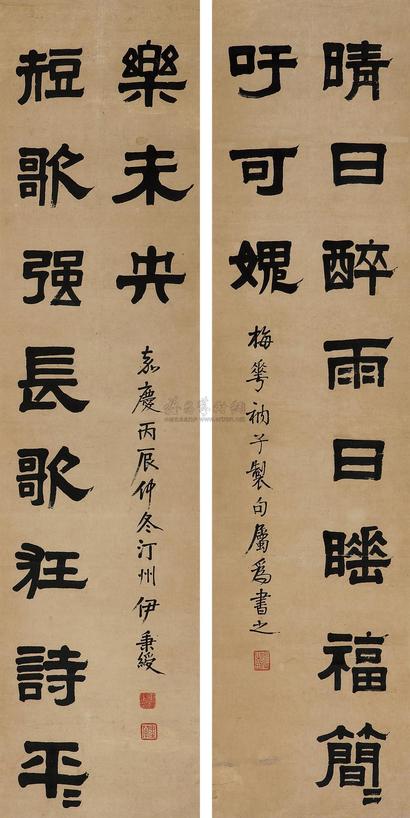 晴日醉雨日睡福簡〻
吁可媿
梅華衲子製句屬爲書之
短歌强長歌狂詩平〻
樂未央
嘉慶丙辰仲冬汀州伊秉綬